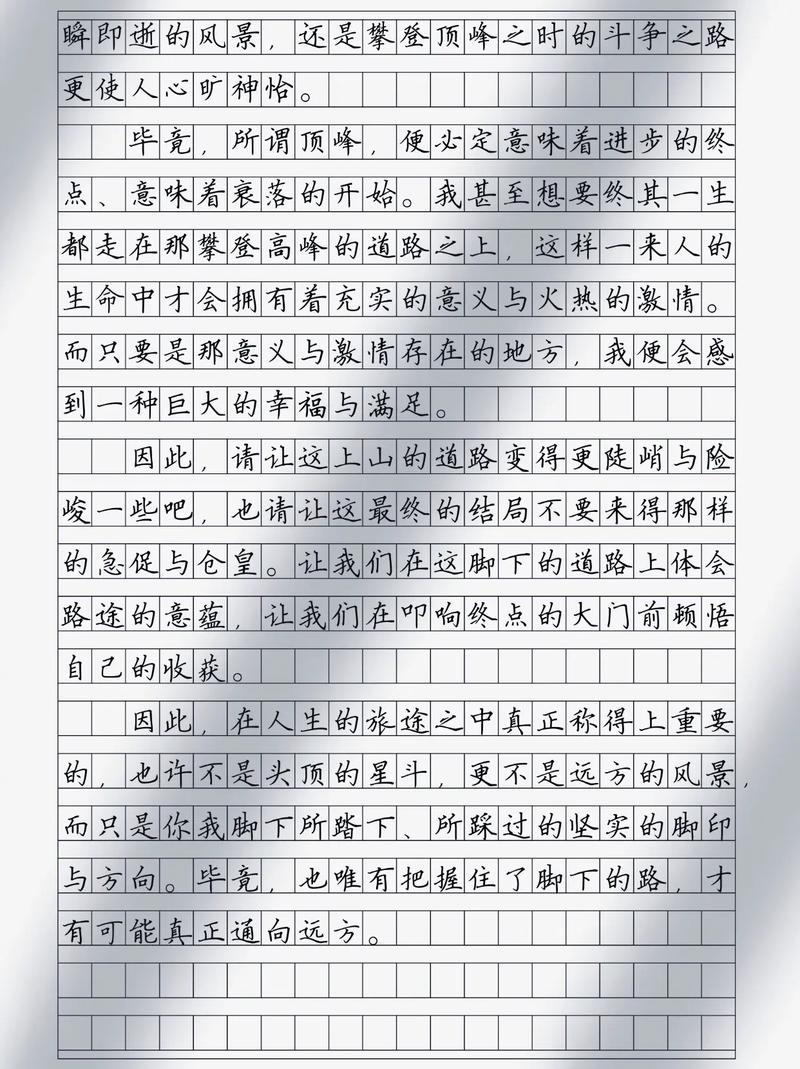 瞬即逝的风景，还是攀登顶峰之时的斗争之路
更使人心旷神怡。
毕竟，所谓顶峰，便必定意味着进步的终
点、意味着衰落的开始。我甚至想要终其一生
都走在那攀登高峰的道路之上，这样一来人的
生命中才会拥有着充实的意义与火热的激情。
而只要是那意义与激情存在的地方，我便会感
到一种巨大的幸福与满足。
因此，请让这上山的道路变得更陡峭与险
峻一些吧，也请让这最终的结局不要来得那样
的急促与仓皇。让我们在这脚下的道路上体会
路途的意蕴，让我们在叩响终点的大门前顿悟
自己的收获。
因此，在人生的旅途之中真正称得上重要
的，也许不是头顶的星斗，更不是远方的风景，
而只是你我脚下所踏下、所踩过的坚实的脚印
与方向。毕竟，也唯有把握住了脚下的路，才
有可能真正通向远方。